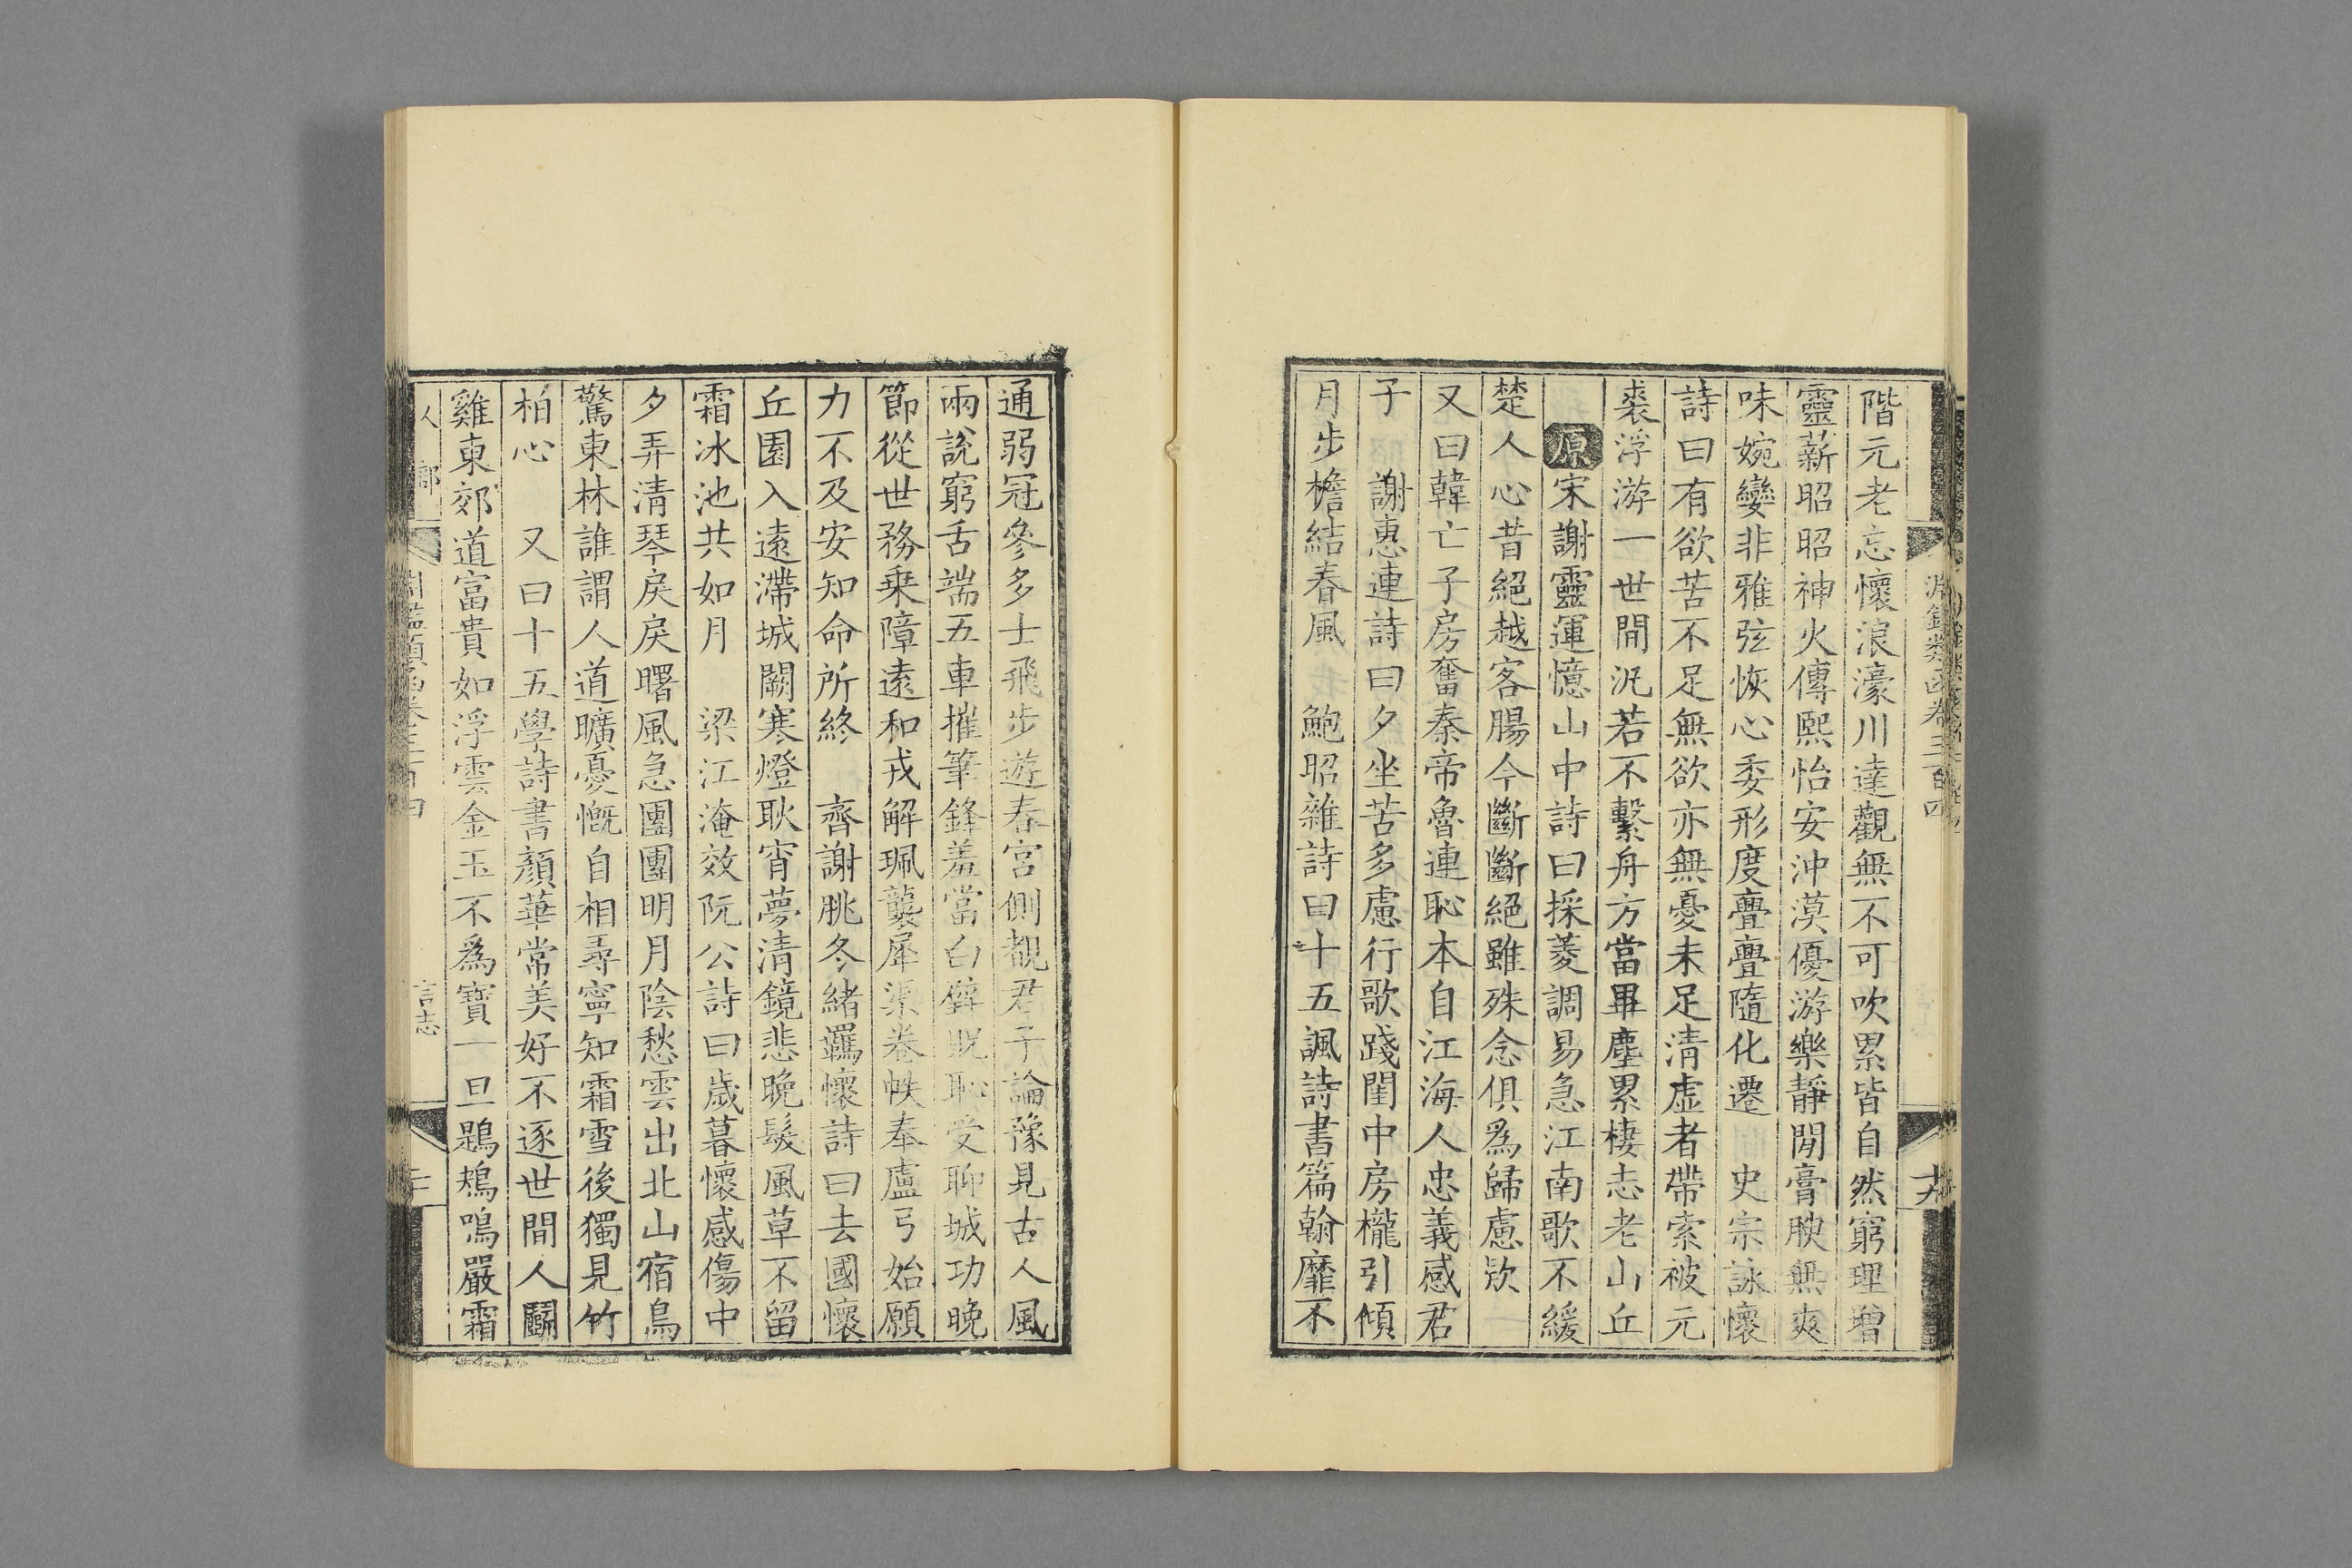 淵鑑類函卷三百四
十九
階元老忘懷浪濠川達觀無不可吹累皆自然窮理增
靈薪昭昭神火傳熙怡安沖漠優游樂靜閒膏腴無爽
味婉孌非雅弦恢心委形度亹亹隨化遷 史宗詠懷
詩曰有欲苦不足無欲亦無憂未足清虛者帶索被元
裘浮游一世間況若不繫舟方當畢塵累棲志老山丘
原宋謝靈運憶山中詩曰採菱調易急江南歌不緩
楚人心昔絕越客腸今斷斷絕雖殊念俱為歸慮欵
又曰韓亡子房奮秦帝魯連恥本自江海人忠義感君
子 謝惠連詩曰夕坐苦多慮行歌踐閨中房櫳引傾
月步檐結春風 鮑昭雜詩曰十五諷詩書篇翰靡不
通弱冠參多士飛步遊春宮側覩君子論豫見古人風
兩說窮舌端五車摧筆鋒羞當白璧貺恥受聊城功晚
節從世務乘障遠和戎解珮襲犀渠卷帙奉盧弓始願
力不及安知命所終 齊謝朓冬緒羈懷詩曰去國懷
丘園入遠滯城闕寒燈耿宵夢清鏡悲曉髮風草不留
霜冰池共如月 梁江淹效阮公詩曰歲暮懷感傷中
夕弄清琴戾戾曙風急團團明月陰愁雲出北山宿鳥
驚東林誰謂人道曠憂慨自相尋寧知霜雪後獨見竹
柏心 又曰十五學詩書顏華常美好不逐世間人鬭
雞東郊道富貴如浮雲金玉不為寶一旦鶗鴂鳴嚴霜
言志